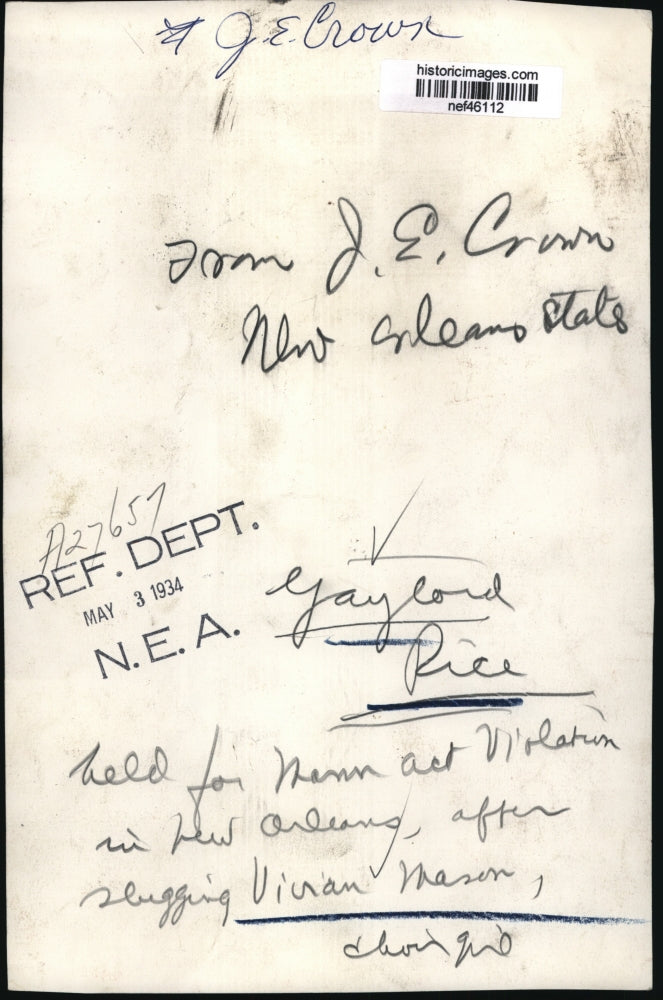 # J.E. Crown
historicimages.com
nef46112
From J. E. Crown
New Orleans States
A27657
REF. DEPT.
MAY 3 1934
N.E.A.
Gaylord
Rice
held for Mann act Violation
in New Orleans, after
slugging Vivian Mason,
choir girl